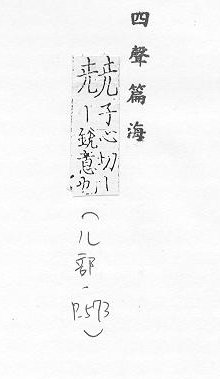 四聲篇海
子心切丨
丨銳意也
（儿部，P.573）